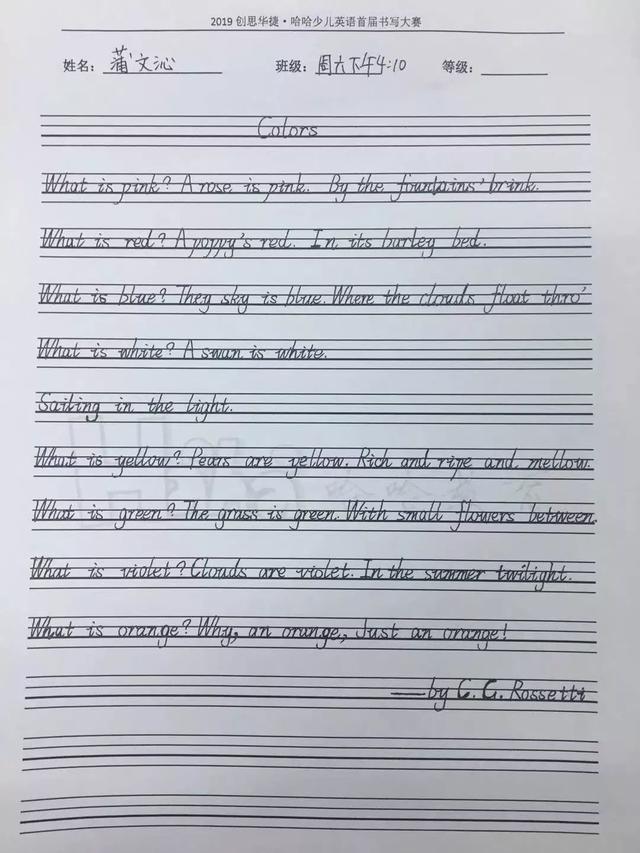 2019 创思华捷·哈哈少儿英语首届书写大赛
姓名: 蒲文沁 班级: 周六下午4:10 等级:
Colors
What is pink? A rose is pink. By the fountains' brink.
What is red? A poppy's red. In its barley bed.
What is blue? They sky is blue. Where the clouds float thro'
What is white? A swan is white.
Sailing in the light.
What is yellow? Pears are yellow. Rich and ripe and mellow.
What is green? The grass is green. With small flowers between.
What is violet? Clouds are violet. In the summer twilight.
What is orange? Why, an orange, Just an orange!
——by C. G. Rossetti